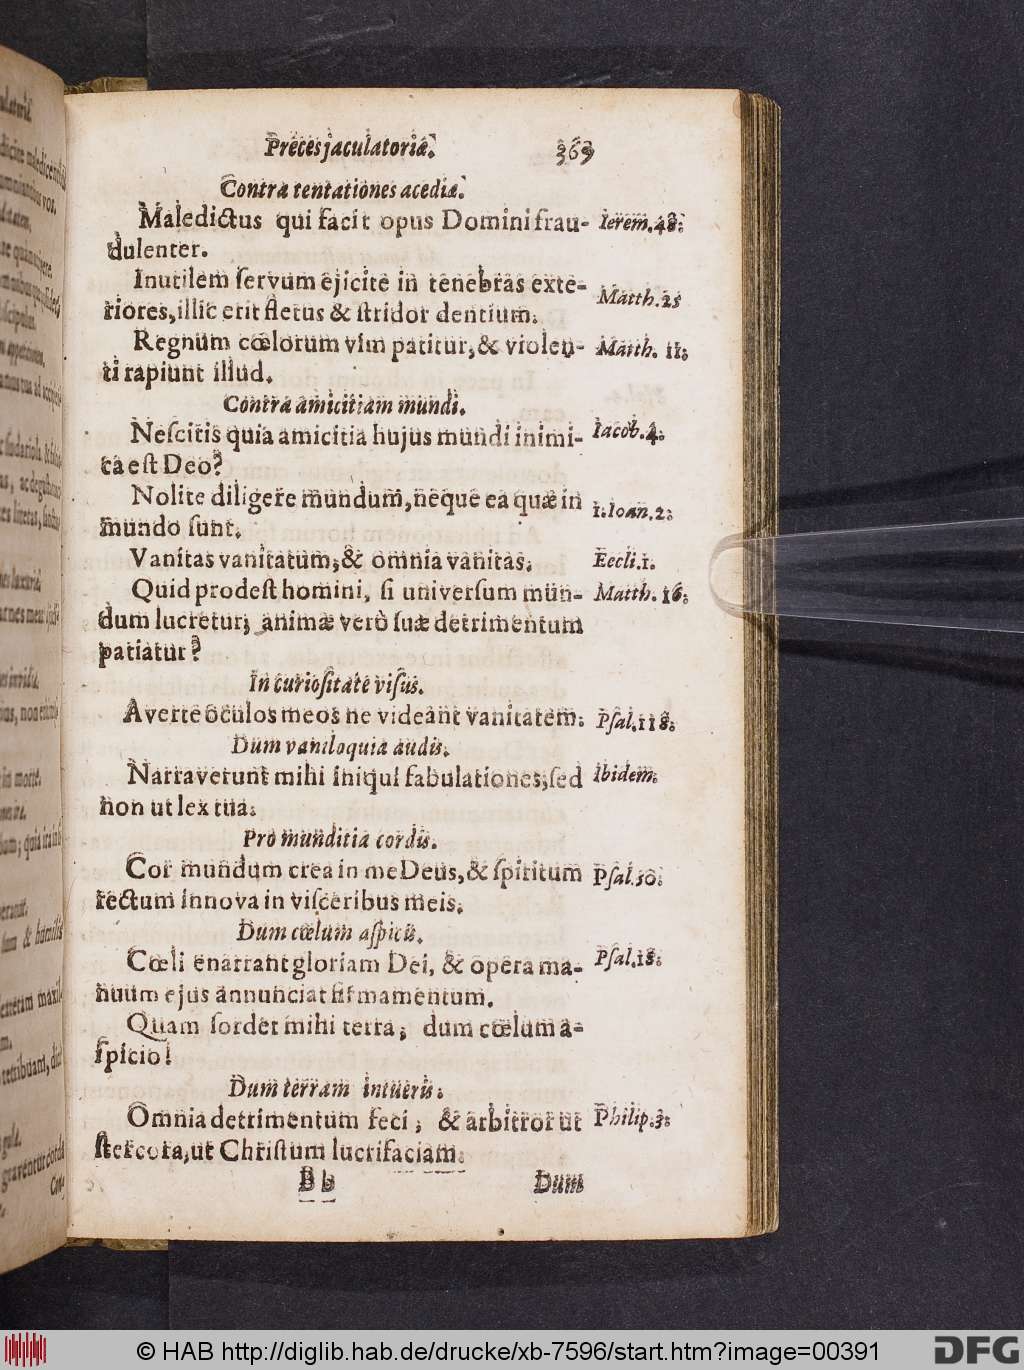 Preces jaculatoriæ. 369
Contra tentationes acediæ.
Maledictus qui facit opus Domini frau- Ierem.48.
dulenter.
Inutilem ſervum ejicite in tenebras exte- Matth.25
riores, illic erit fletus & ſtridor dentium.
Regnum cœlorum vim patitur, & violen- Matth. 11.
ti rapiunt illud.
Contra amicitiam mundi.
Neſcitis quia amicitia hujus mundi inimi- Iacob.4.
ca eſt Deo?
Nolite diligere mundum, neque ea quæ in 1.Ioan.2.
mundo ſunt.
Vanitas vanitatum, & omnia vanitas. Eccli.1.
Quid prodeſt homini, ſi univerſum mun- Matth. 16.
dum lucretur; animæ verò ſuæ detrimentum
patiatur?
In curioſitate viſus.
Averte oculos meos ne videant vanitatem. Pſal.118.
Dum vaniloquia audis.
Narraverunt mihi iniqui fabulationes, ſed Ibidem.
non ut lex tua.
Pro munditia cordis.
Cor mundum crea in me Deus, & ſpiritum Pſal.50.
rectum innova in viſceribus meis.
Dum cœlum aſpicis.
Cœli enarrant gloriam Dei, & opera ma- Pſal.18.
nuum ejus annunciat firmamentum.
Quam ſordet mihi terra, dum cœlum a-
ſpicio!
Dum terram intueris.
Omnia detrimentum feci, & arbitror ut Philip.3.
ſtercora, ut Chriſtum lucrifaciam.
Bb Dum
© HAB http://diglib.hab.de/drucke/xb-7596/start.htm?image=00391
DFG